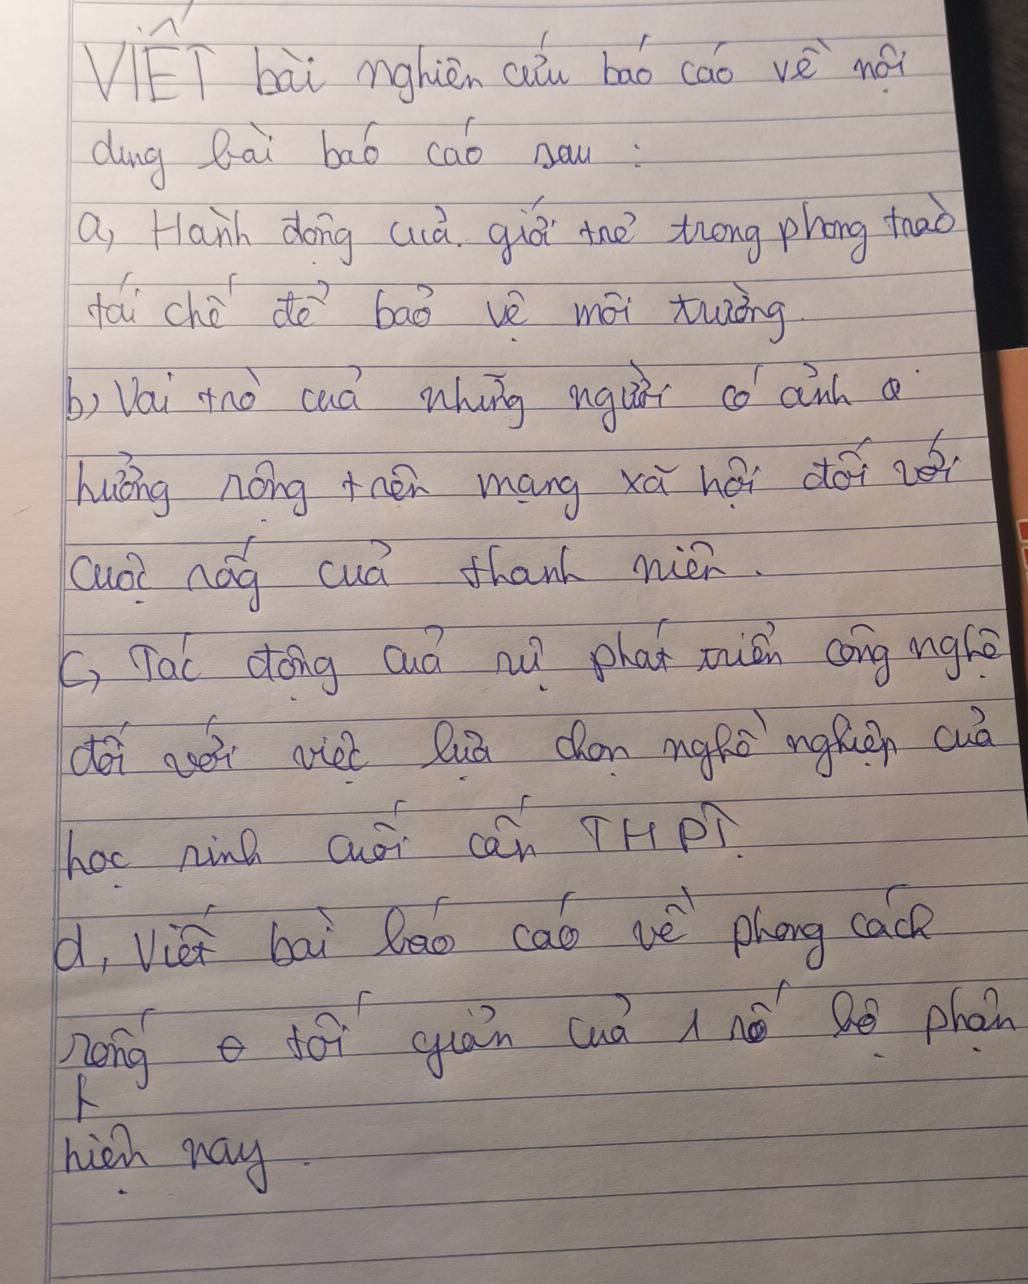 VIẾT bài nghiên cứu báo cáo về nội
dung bài báo cáo sau :
a, Hành động của giới trẻ trong phong trào
tái chế để bảo vệ môi trường.
b) Vai trò của những người có ảnh
hưởng rộng trên mạng xã hội đối với
cuộc sống của thanh niên.
c, Tác động của sự phát triển công nghệ
đối với việc lựa chọn nghề nghiệp của
học sinh cuối cấp THPT.
d, Viết bài báo cáo về phong cách
sống tối giản của 1 số bộ phận
hiện nay.